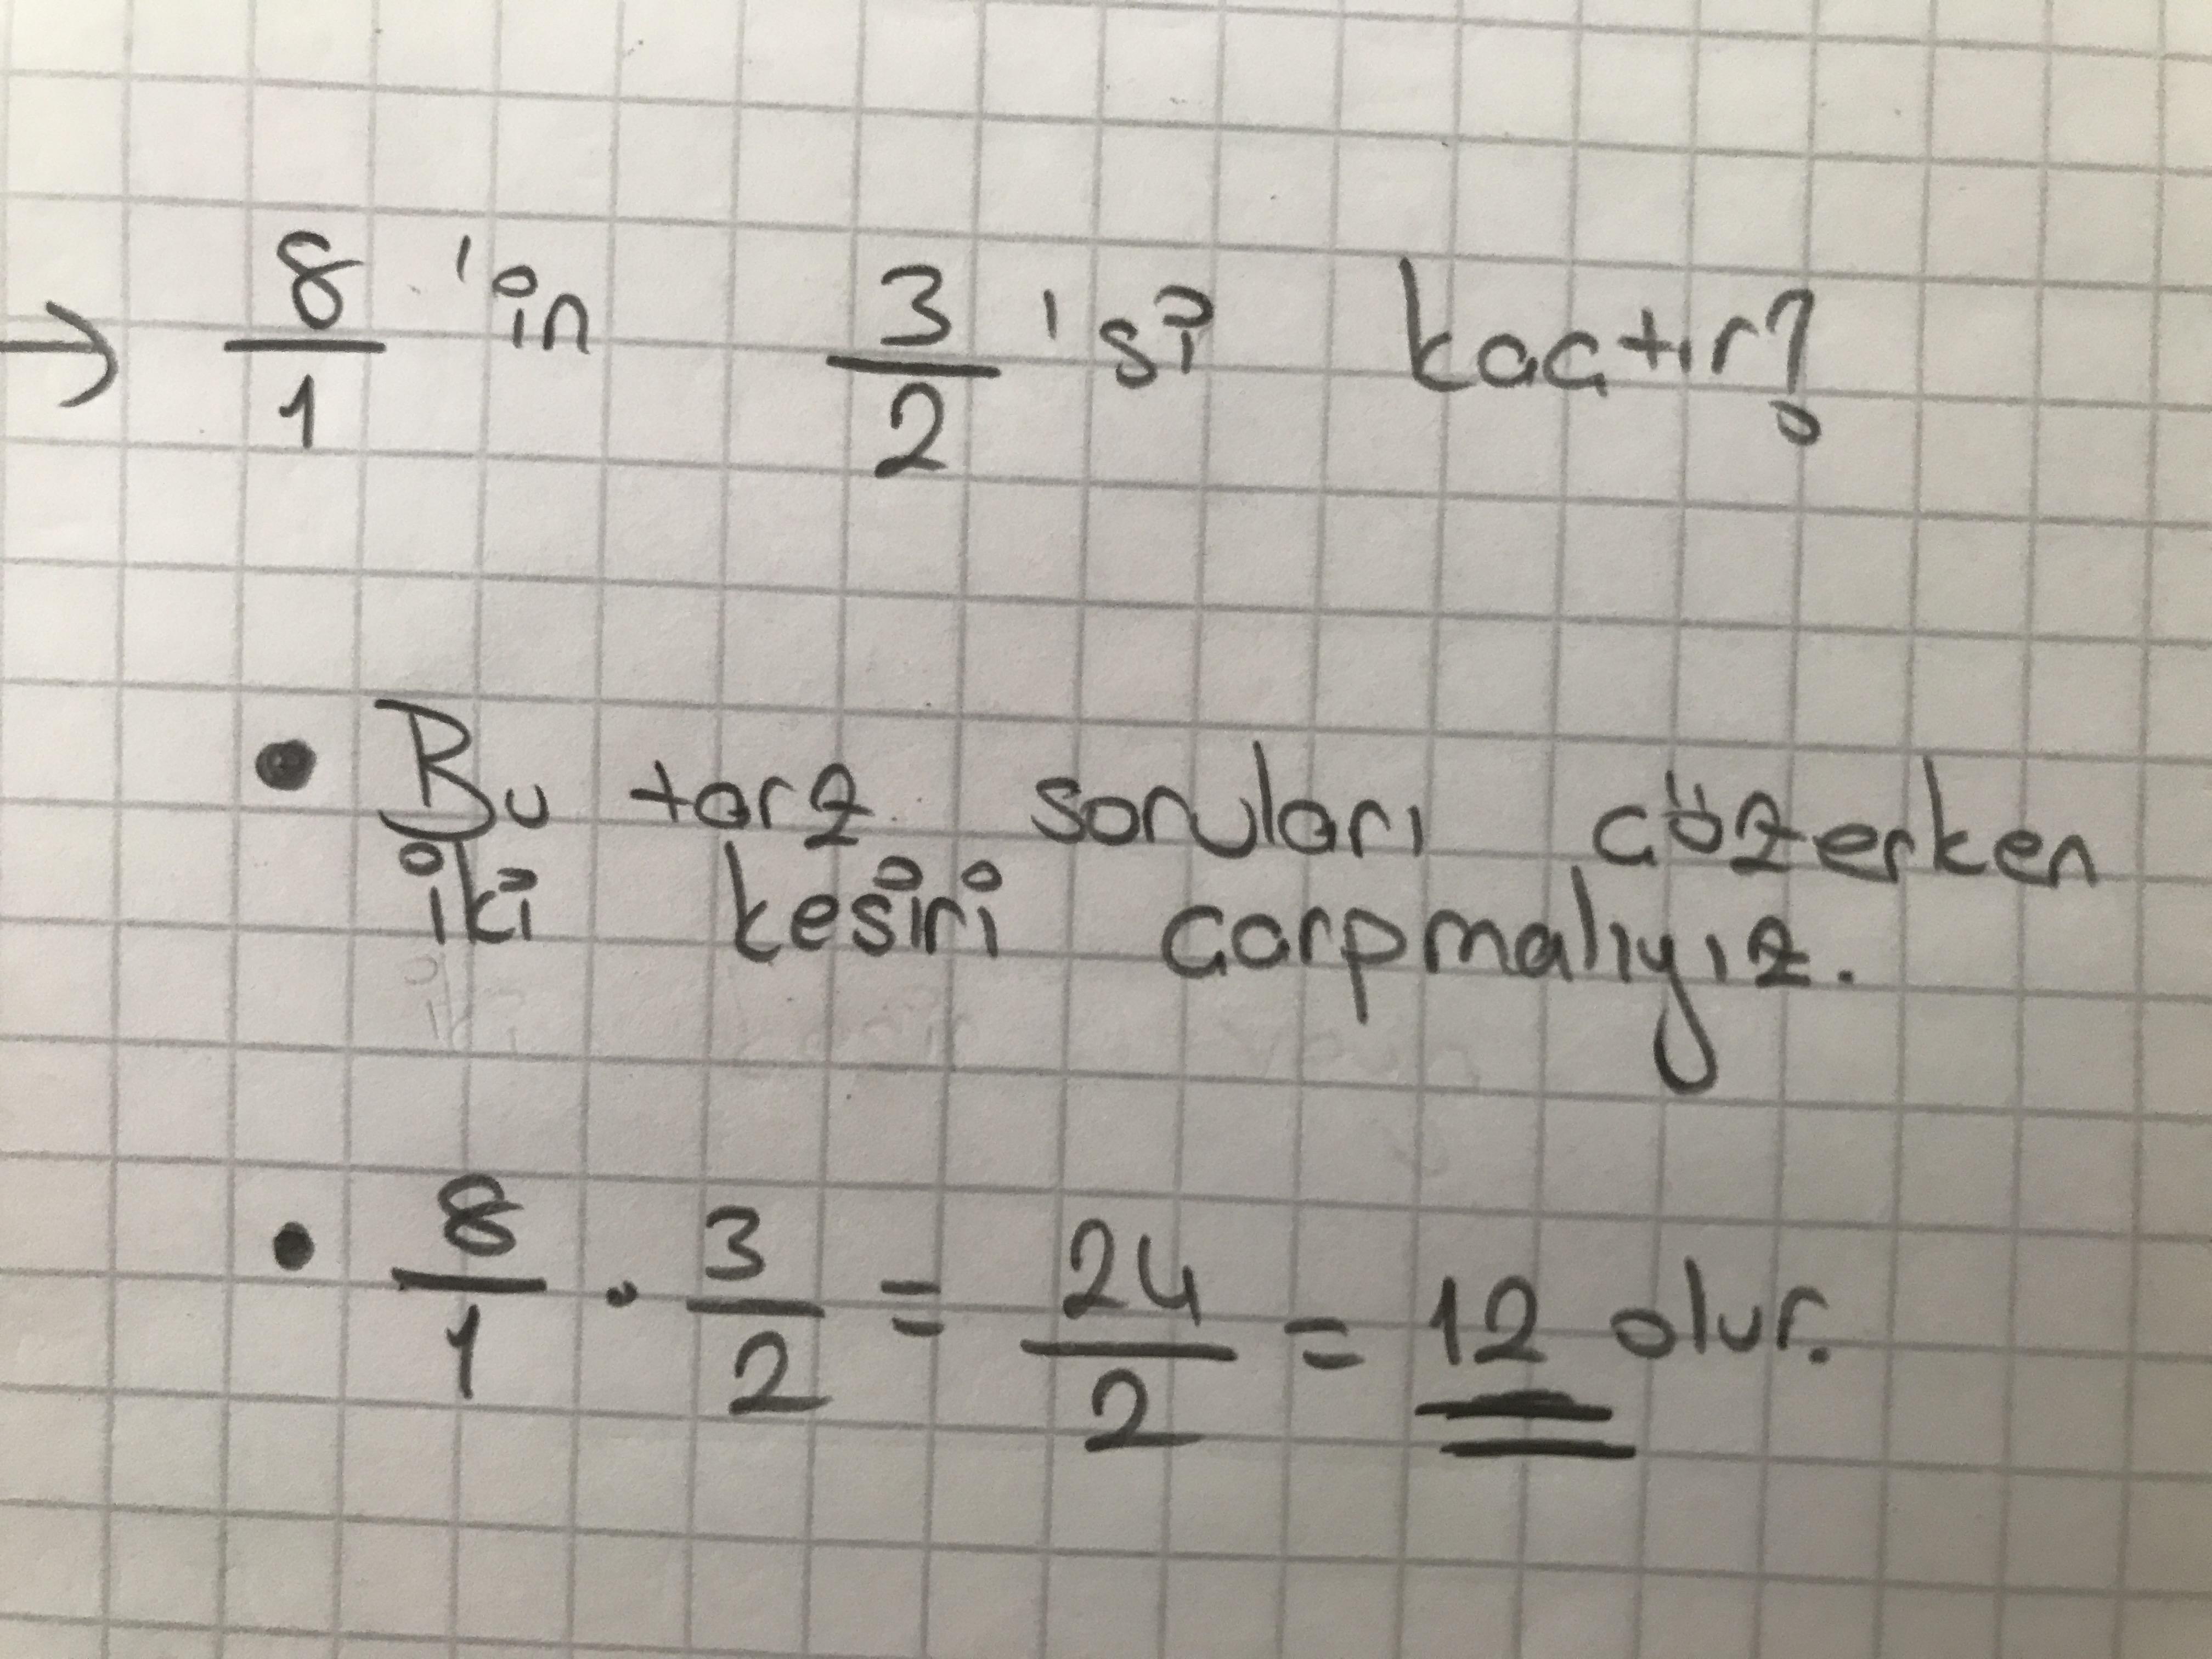 → 8/1 'in 3/2 'si kaçtır?
• Bu tarz soruları çözerken
iki kesiri çarpmalıyız.
• 8/1 . 3/2 = 24/2 = 12 olur.